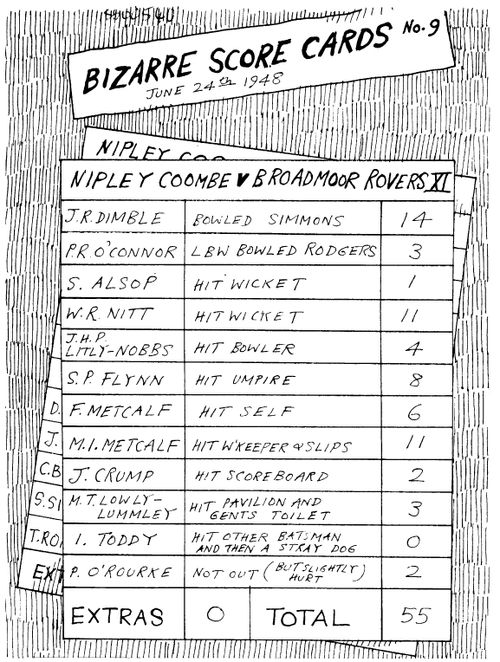 BIZARRE SCORE CARDS No. 9
JUNE 24th 1948
NIPLEY COO
NIPLEY COOMBE V BROADMOOR ROVERS XI
J.R. DIMBLE BOWLED SIMMONS 14
P.R. O'CONNOR LBW BOWLED RODGERS 3
S. ALSOP HIT WICKET 1
W.R. NITT HIT WICKET 11
J.H.P.
LITLY-NOBBS HIT BOWLER 4
S.P. FLYNN HIT UMPIRE 8
D.
F. METCALF HIT SELF 6
J.
M.I. METCALF HIT W'KEEPER & SLIPS 11
C.B
J. CRUMP HIT SCOREBOARD 2
S.SI
M.T. LOWLY-
LUMMLEY HIT PAVILION AND
GENTS TOILET 3
T.RO
I. TODDY HIT OTHER BATSMAN
AND THEN A STRAY DOG 0
EXT
P. O'ROURKE NOT OUT (BUT SLIGHTLY)
HURT 2
EXTRAS 0 TOTAL 55